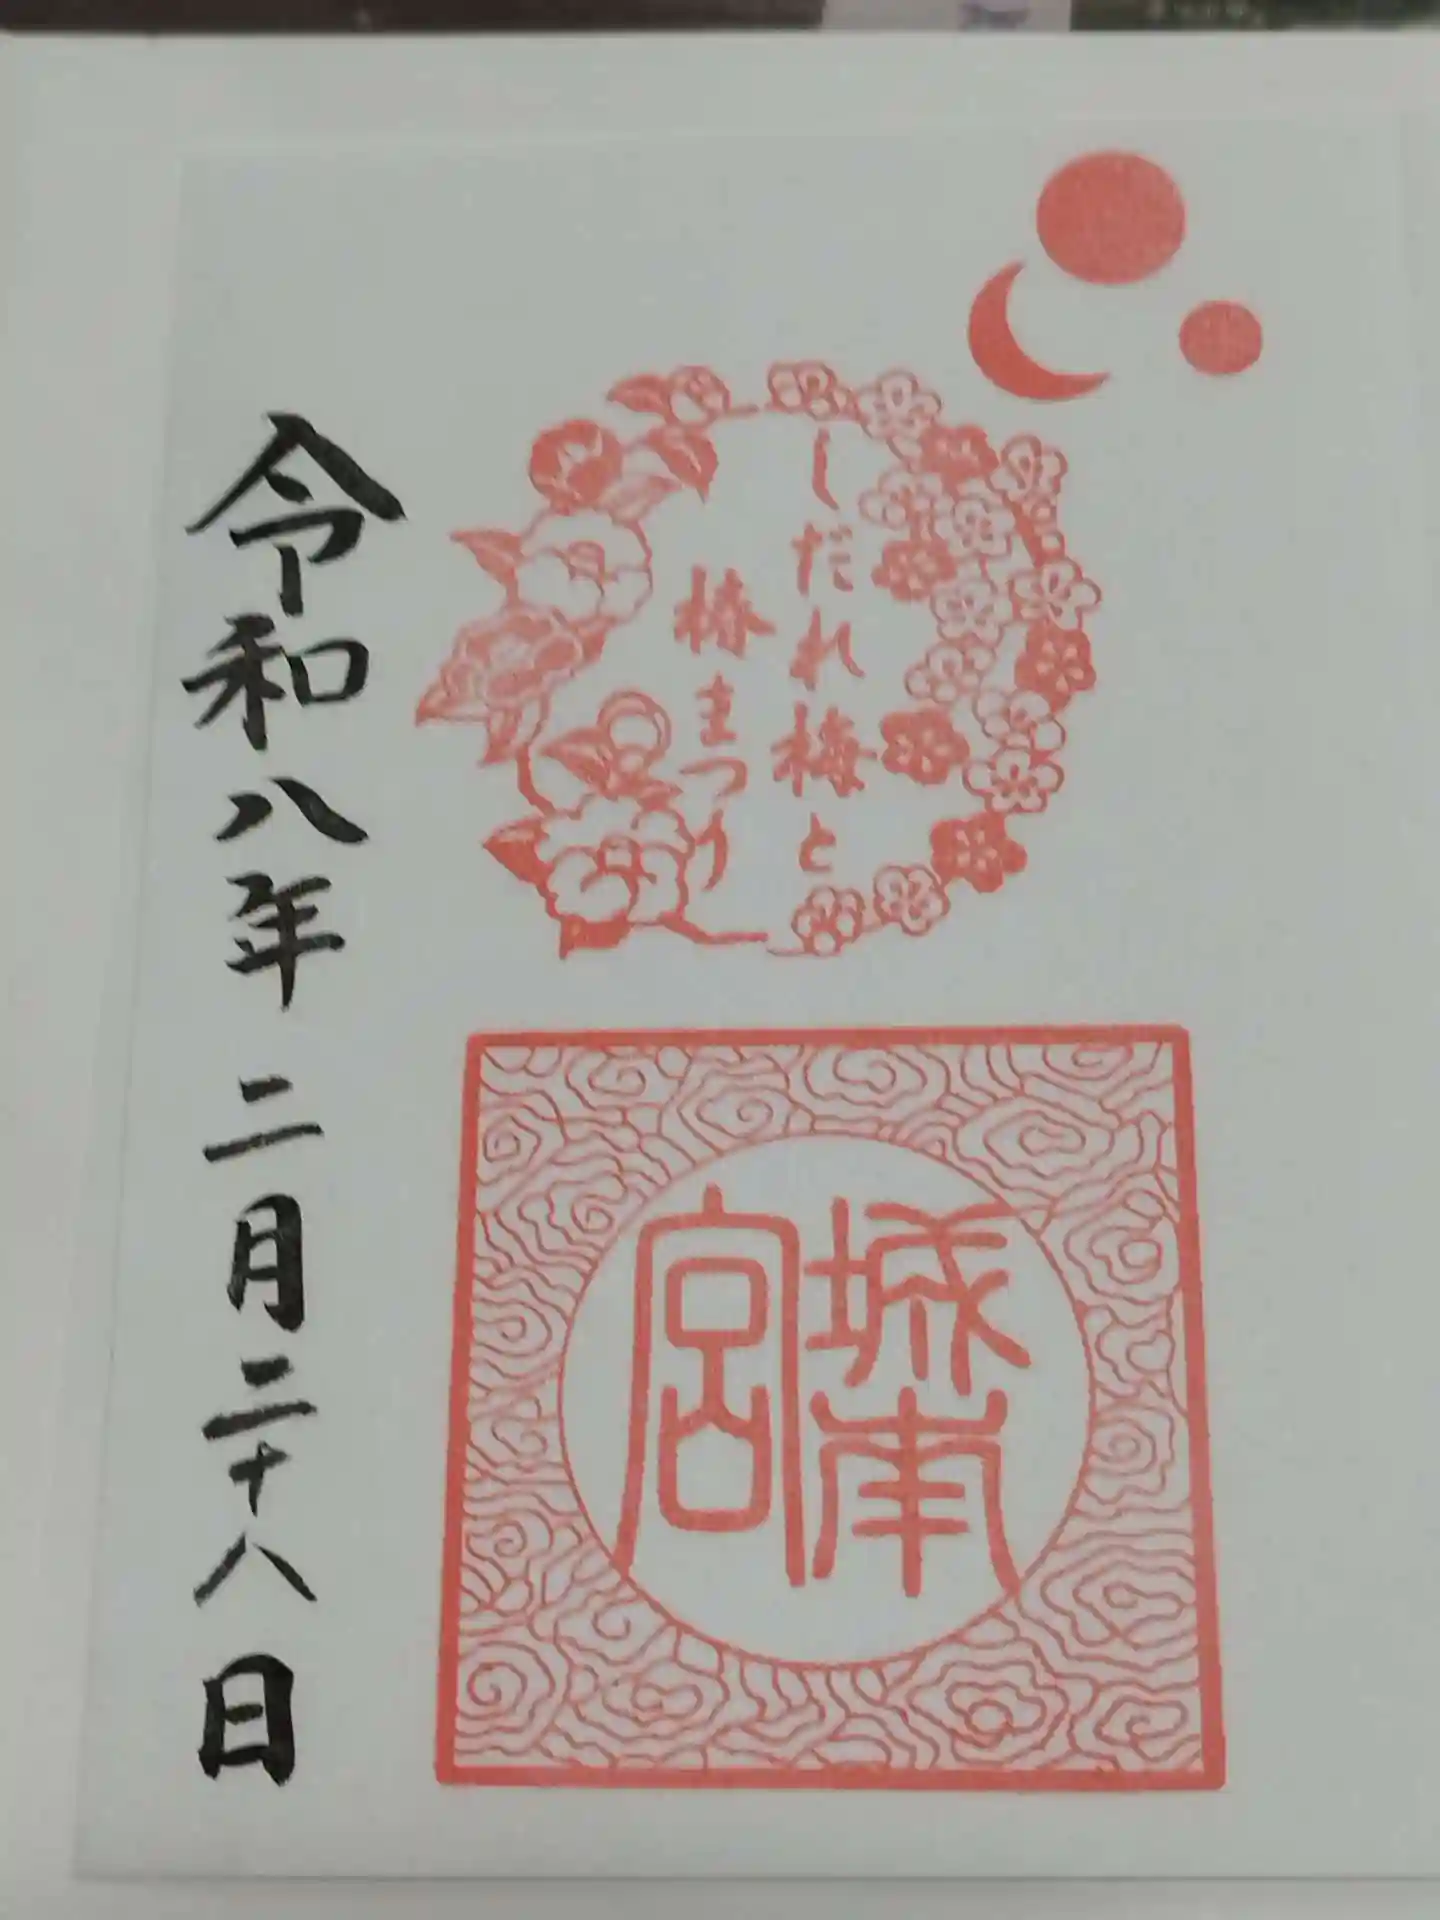 しだれ梅と
椿まつり
城南
宮
令和八年 二月二十八日